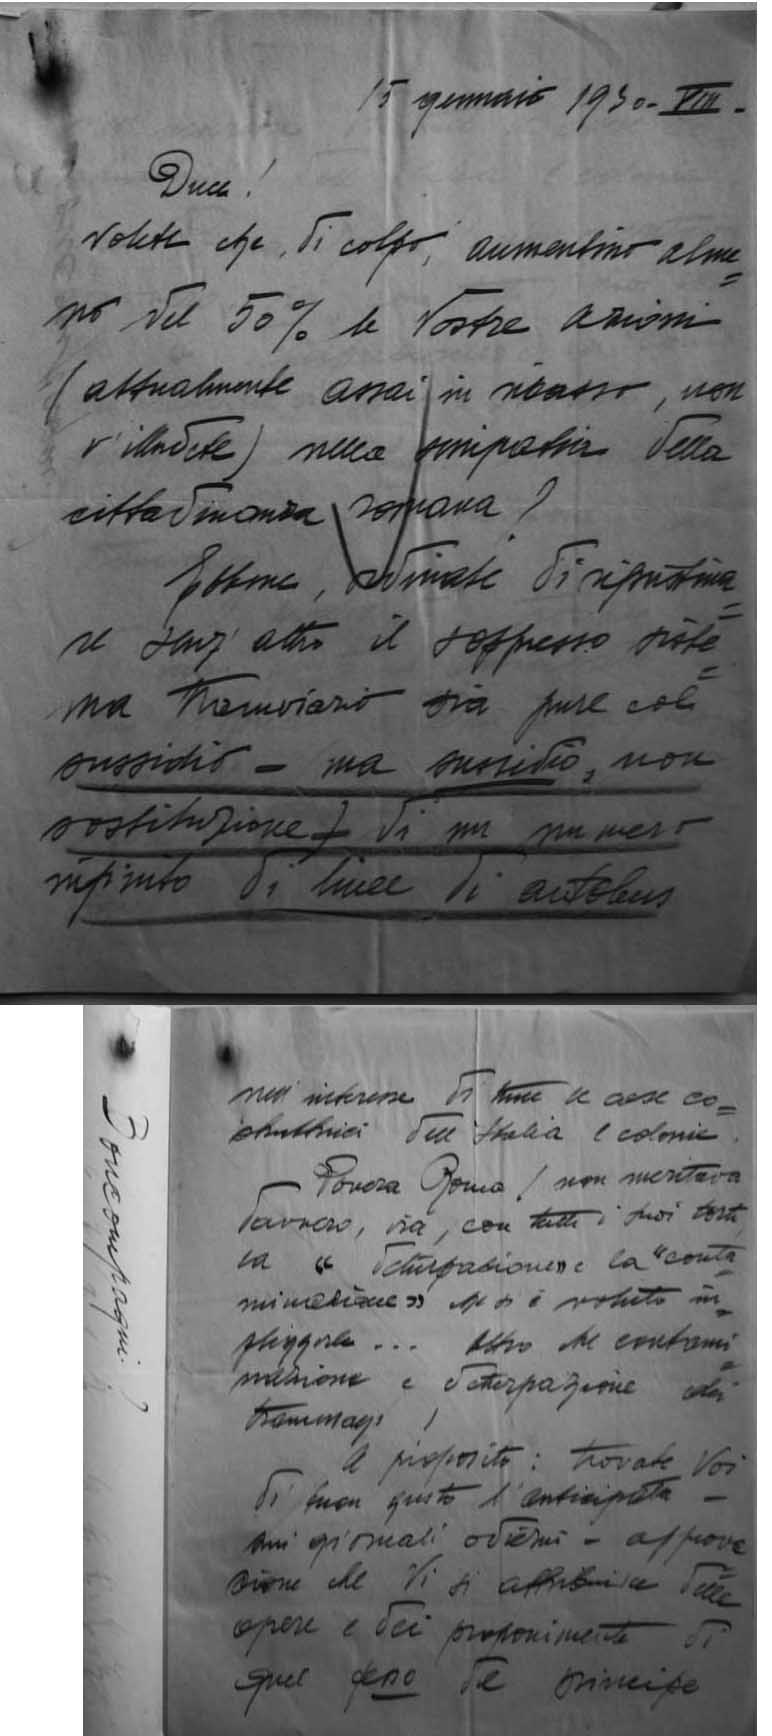 15 gennaio 1930-VIII-
Duce!
Volete che, di colpo, aumentino alme=
no del 50% le Vostre azioni
(attualmente assai in ribasso, non
v'illudete) nella simpatia della
cittadinanza romana?
Ebbene, ordinate di ripristina=
re senz'altro il soppresso siste=
ma tramviario sia pure col
sussidio - ma sussidio, non
sostituzione - di un numero
infinito di linee di autobus
nell'interesse di tutte le case co=
struttrici dell'Italia e colonie.
Povera Roma! non meritava
davvero, via, con tutti i suoi torti,
la "deturpazione" e la "conta=
minazione" che si è voluto in=
fliggerle... Altro che contami=
nazione e deturpazione dei
trammays!
A proposito: trovate Voi
di buon gusto l'anticipata -
sui giornali odierni - approva=
zione che Vi si attribuisce delle
opere e dei proponimenti di
quel fesso del principe
Boncompagni?